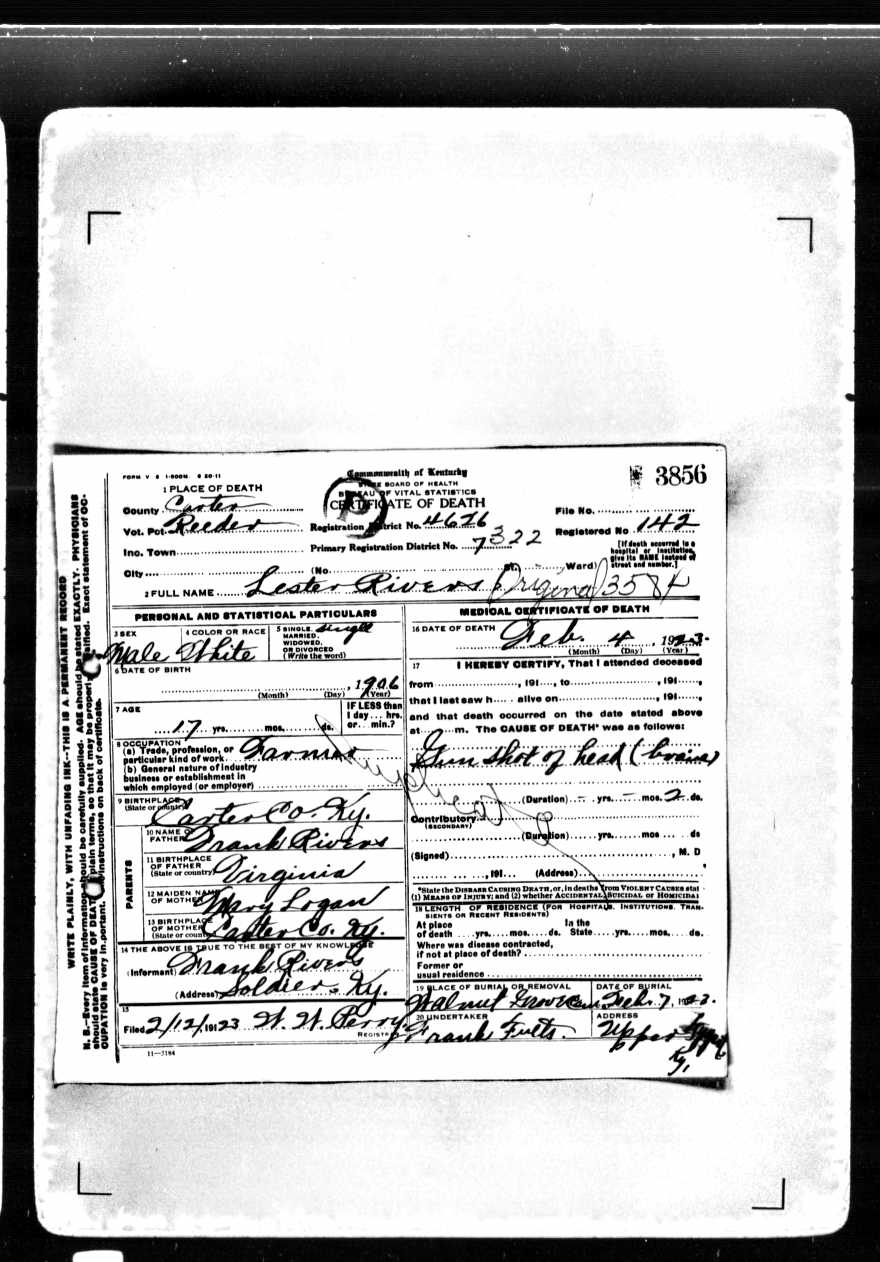 FORM V S 1-500M. 6 20-11
Commonwealth of Kentucky
STATE BOARD OF HEALTH
BUREAU OF VITAL STATISTICS
CERTIFICATE OF DEATH
B
3856
1 PLACE OF DEATH
County Carter
Vot. Pct. Reeder
Inc. Town
City
Registration District No. 4626
Primary Registration District No. 7322
(No. St. Ward)
File No.
Registered No 142
[If death occurred in a
hospital or institution,
give its NAME instead of
street and number.]
2 FULL NAME Lester Rivers
Original 3584
Duplicate
PERSONAL AND STATISTICAL PARTICULARS
3 SEX
Male
4 COLOR OR RACE
White
5 SINGLE, single
MARRIED,
WIDOWED,
OR DIVORCED
(Write the word)
6 DATE OF BIRTH
, 1906
(Month) (Day) (Year)
7 AGE
17 yrs. mos. ds.
IF LESS than
1 day... hrs.
or... min.?
8 OCCUPATION
(a) Trade, profession, or
particular kind of work Farmer
(b) General nature of industry
business or establishment in
which employed (or employer)
9 BIRTHPLACE
(State or country)
Carter Co. Ky.
PARENTS
10 NAME OF
FATHER Frank Rivers
11 BIRTHPLACE
OF FATHER
(State or country) Virginia
12 MAIDEN NAME
OF MOTHER Mary Logan
13 BIRTHPLACE
OF MOTHER
(State or country) Carter Co. Ky.
14 THE ABOVE IS TRUE TO THE BEST OF MY KNOWLEDGE
(Informant) Frank Rivers
(Address) Soldier, Ky.
15
Filed 2/12/, 1923 W. W. Perry
REGISTRAR
11—3184
MEDICAL CERTIFICATE OF DEATH
16 DATE OF DEATH
Feb. 4, 1923.
(Month) (Day) (Year)
17 I HEREBY CERTIFY, That I attended deceased
from , 191 , to , 191 ,
that I last saw h alive on , 191 ,
and that death occurred on the date stated above
at m. The CAUSE OF DEATH* was as follows:
Gun shot of head (brains)
(Duration) – yrs. – mos. 2 ds.
Contributory
(SECONDARY)
(Duration) yrs. mos ds
(Signed) , M. D
, 191 (Address)
*State the DISEASE CAUSING DEATH, or, in deaths from VIOLENT CAUSES stat
(1) MEANS OF INJURY; and (2) whether ACCIDENTAL, SUICIDAL or HOMICIDAL
18 LENGTH OF RESIDENCE (FOR HOSPITALS, INSTITUTIONS, TRAN-
SIENTS OR RECENT RESIDENTS)
At place In the
of death yrs. mos. ds. State yrs. mos. ds.
Where was disease contracted,
if not at place of death?
Former or
usual residence
19 PLACE OF BURIAL OR REMOVAL
Walnut Grove Cem.
DATE OF BURIAL
Feb. 7, 1923.
20 UNDERTAKER
Frank Fults.
ADDRESS
Upper Tygart
Ky.
WRITE PLAINLY, WITH UNFADING INK—THIS IS A PERMANENT RECORD
N. B.—Every item of information should be carefully supplied. AGE should be stated EXACTLY. PHYSICIANS
should state CAUSE OF DEATH in plain terms, so that it may be properly classified. Exact statement of OC-
CUPATION is very important. See instructions on back of certificate.